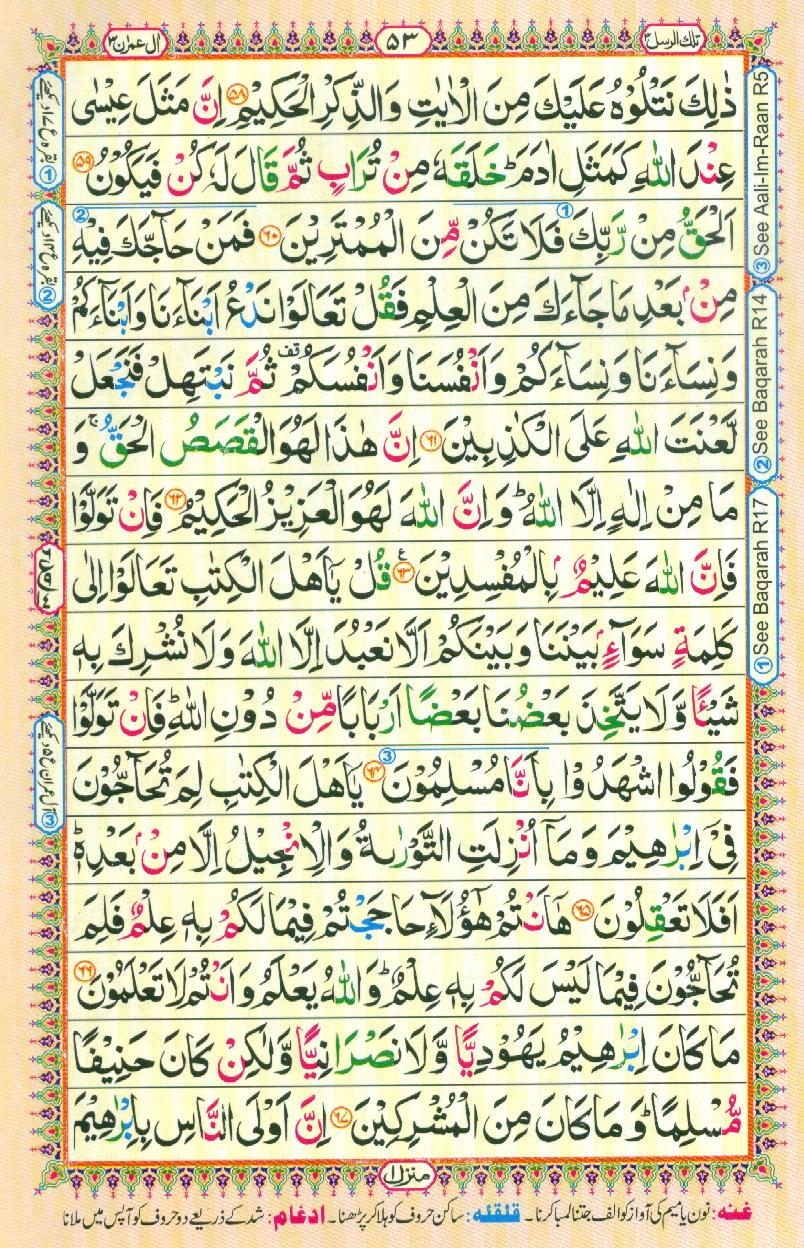 تلك الرسل ٣
٥٣
اٰل عمرٰن ٣
ذٰلِكَ نَتْلُوْهُ عَلَيْكَ مِنَ الْاٰيٰتِ وَالذِّكْرِ الْحَكِيْمِ ﴿٥٨﴾ اِنَّ مَثَلَ عِيْسٰى
عِنْدَ اللّٰهِ كَمَثَلِ اٰدَمَ ؕ خَلَقَهٗ مِنْ تُرَابٍ ثُمَّ قَالَ لَهٗ كُنْ فَيَكُوْنُ ﴿٥٩﴾
اَلْحَقُّ مِنْ رَّبِّكَ فَلَا تَكُنْ مِّنَ الْمُمْتَرِيْنَ ﴿٦٠﴾ فَمَنْ حَآجَّكَ فِيْهِ
مِنْۢ بَعْدِ مَا جَآءَكَ مِنَ الْعِلْمِ فَقُلْ تَعَالَوْا نَدْعُ اَبْنَآءَنَا وَاَبْنَآءَكُمْ
وَنِسَآءَنَا وَنِسَآءَكُمْ وَاَنْفُسَنَا وَاَنْفُسَكُمْ ۟ ثُمَّ نَبْتَهِلْ فَنَجْعَلْ
لَّعْنَتَ اللّٰهِ عَلَى الْكٰذِبِيْنَ ﴿٦١﴾ اِنَّ هٰذَا لَهُوَ الْقَصَصُ الْحَقُّ ۚ وَ
مَا مِنْ اِلٰهٍ اِلَّا اللّٰهُ ؕ وَاِنَّ اللّٰهَ لَهُوَ الْعَزِيْزُ الْحَكِيْمُ ﴿٦٢﴾ فَاِنْ تَوَلَّوْا
فَاِنَّ اللّٰهَ عَلِيْمٌۢ بِالْمُفْسِدِيْنَ ﴿٦٣﴾ قُلْ يٰۤاَهْلَ الْكِتٰبِ تَعَالَوْا اِلٰى
كَلِمَةٍ سَوَآءٍۭ بَيْنَنَا وَبَيْنَكُمْ اَلَّا نَعْبُدَ اِلَّا اللّٰهَ وَلَا نُشْرِكَ بِهٖ
شَيْـًٔا وَّلَا يَتَّخِذَ بَعْضُنَا بَعْضًا اَرْبَابًا مِّنْ دُوْنِ اللّٰهِ ؕ فَاِنْ تَوَلَّوْا
فَقُوْلُوا اشْهَدُوْا بِاَنَّا مُسْلِمُوْنَ ﴿٦٤﴾ يٰۤاَهْلَ الْكِتٰبِ لِمَ تُحَآجُّوْنَ
فِيْۤ اِبْرٰهِيْمَ وَمَاۤ اُنْزِلَتِ التَّوْرٰىةُ وَالْاِنْجِيْلُ اِلَّا مِنْۢ بَعْدِهٖ ؕ
اَفَلَا تَعْقِلُوْنَ ﴿٦٥﴾ هٰۤاَنْتُمْ هٰۤؤُلَآءِ حَاجَجْتُمْ فِيْمَا لَكُمْ بِهٖ عِلْمٌ فَلِمَ
تُحَآجُّوْنَ فِيْمَا لَيْسَ لَكُمْ بِهٖ عِلْمٌ ؕ وَاللّٰهُ يَعْلَمُ وَاَنْتُمْ لَا تَعْلَمُوْنَ ﴿٦٦﴾
مَا كَانَ اِبْرٰهِيْمُ يَهُوْدِيًّا وَّلَا نَصْرَانِيًّا وَّلٰكِنْ كَانَ حَنِيْفًا
مُّسْلِمًا ؕ وَمَا كَانَ مِنَ الْمُشْرِكِيْنَ ﴿٦٧﴾ اِنَّ اَوْلَى النَّاسِ بِاِبْرٰهِيْمَ
③ See Aali-Im-Raan R5
② See Baqarah R14
① See Baqarah R17
① بقره ع ١٧ دیکھئے
② بقره ع ١٤ دیکھئے
③ آل عمران ع ٥ دیکھئے
منزل ١
غنه: نون یا میم کی آواز کو الف جتنا لمبا کرنا۔ قلقله: ساکن حروف کو ہلا کر پڑھنا۔ ادغام: شد کے ذریعے دو حروف کو آپس میں ملانا